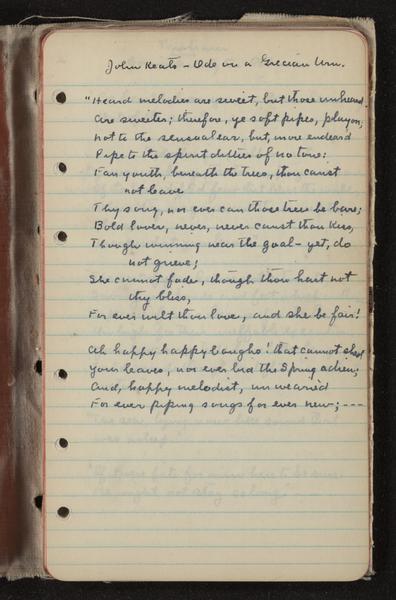 John Keats - Ode on a Grecian Urn.
"Heard melodies are sweet, but those unheard
are sweeter; therefore, ye soft pipes, play on;
not to the sensual ear, but, more endeared
Pipe to the spirit ditties of no tone:
Fair youth, beneath the trees, thou canst
not leave
Thy song, nor ever can those trees be bare;
Bold lover, never, never canst thou kiss,
Though winning near the goal - yet, do
not grieve;
She cannot fade, though thou hast not
thy bliss,
For ever wilt thou love, and she be fair!
Ah happy happy boughs! that cannot shed
Your leaves, nor ever bid the Spring adieu;
And, happy melodist, unwearied
For ever piping songs for ever new; ---